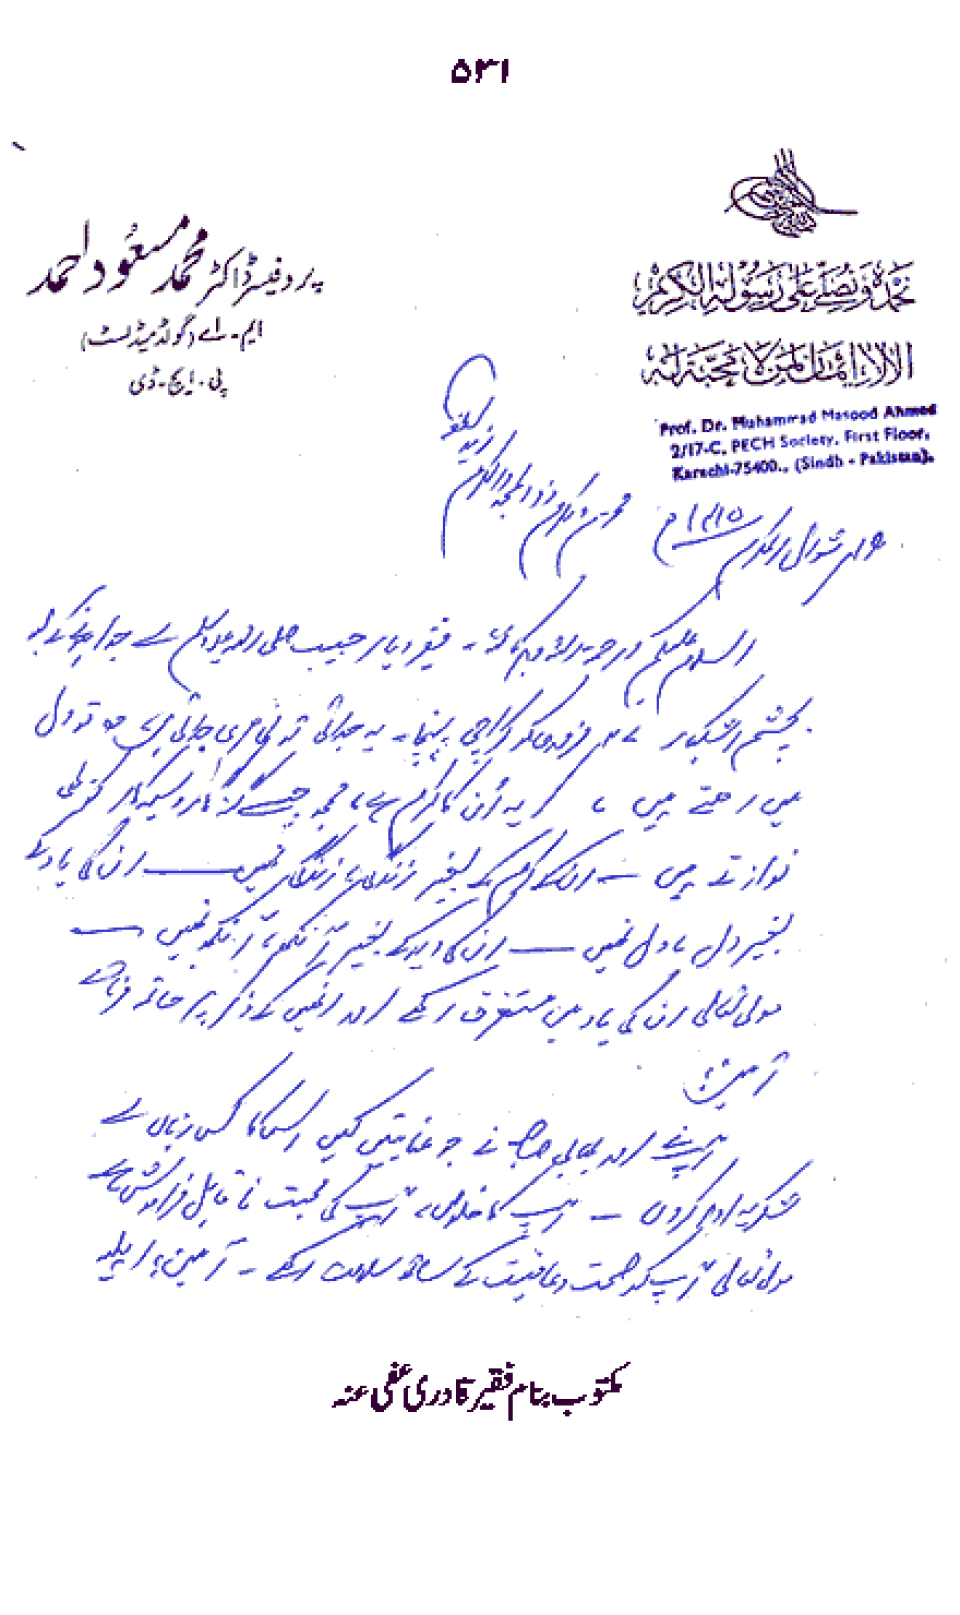 ۵۳۱
نحمدہ ونصلی علیٰ رسولہ الکریم
الا لا ایمان لمن لا محبة لہ
Prof. Dr. Muhammad Masood Ahmed
2/17-C, PECH Society, First Floor,
Karachi-75400., (Sindh - Pakistan).
پروفیسر ڈاکٹر محمد مسعود احمد
ایم۔ اے (گولڈ میڈلسٹ)
پی۔ ایچ۔ ڈی
شوال المکرم ۱۴۱۵ھ
السلام علیکم ورحمۃ اللہ وبرکاتہ۔ فقیر دیار حبیب صلی اللہ علیہ وسلم سے جدا ہونے کے بعد
بچشم اشکبار فروری کو کراچی پہنچا۔ یہ جدائی تو ظاہری جدائی ہے وہ تو دل
میں رہتے ہیں، یہ ان کا کرم ہے، مجھ جیسے گناہگار و سیہ کار کو بھی
نوازتے ہیں — ان کے کرم کے بغیر زندگی، زندگی نہیں — ان کی یاد کے
بغیر دل، دل نہیں — ان کی دید کے بغیر آنکھ، آنکھ نہیں —
مولیٰ تعالیٰ ان کی یاد میں مستغرق رکھے اور انہیں کے ذکر پر خاتمہ فرمائے
آمین!
آپ نے اور بھائی صاحب نے جو عنایتیں کیں اس کا کس زباں سے
شکریہ ادا کروں — آپ کا خلوص، آپ کی محبت ناقابل فراموش ہے
مولیٰ تعالیٰ آپ کو صحت و عافیت کے ساتھ سلامت رکھے۔ آمین!
مکتوب بنام فقیر قادری عفی عنہ